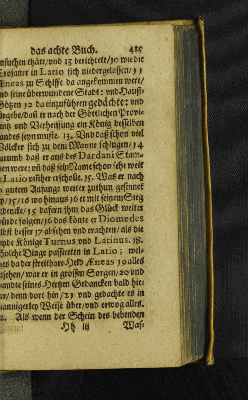 das achte Buch. 485
nsuchen thäte/und 13 berichtete/10 wie die
Trojaner in Latio sich niedergelassen/11
Æneas zu Schiffe da angekommen were/
nd seine überwundene Stadt: und Hauß-
Götzen 12 da einzuführen gedächte: und
ürgebe/ daß er nach der Göttlichen Provi
entz und Verheissung ein König desselben
andes seyn müste. 13. Und daß schon viel
ölcker sich zu dem Manne schlügen/14
arumb daß er aus des Dardani Stam-
men were: vñ daß sein Name schon sehr weit
Latio vmher erscholle. 15. Was er nach
gutem Anfange weiter zuthun gesinnet
ey/15/16 wo hinaus 16 er mit seinem Sieg
edencke/15 dafern jhm das Glück weiter
ünde folgen/16 das könte er Diomedes
lbst besser 17 absehen und erachten/ als die
eyde Könige Turnus und Latinus. 18.
Solche Dinge passireten in Latio; wel-
es da der streitbare Held Æneas 19 alles
sehen/ war er in grossen Sorgen/20 und
wandte seines Hertzen Gedancken bald hie-
in/ denn dort hin/21 und gedachte es in
annigerley Weise über/und erwog alles.
2. Als wenn der Schein des bebenden
Hh iij Was-